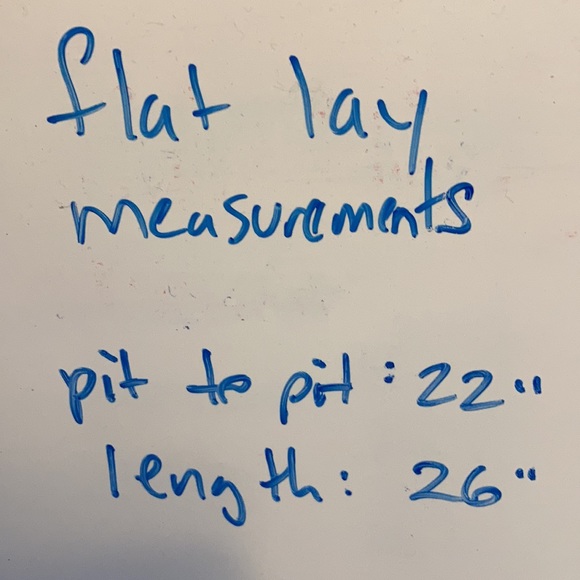 flat lay
measurements
pit to pit: 22"
length: 26"